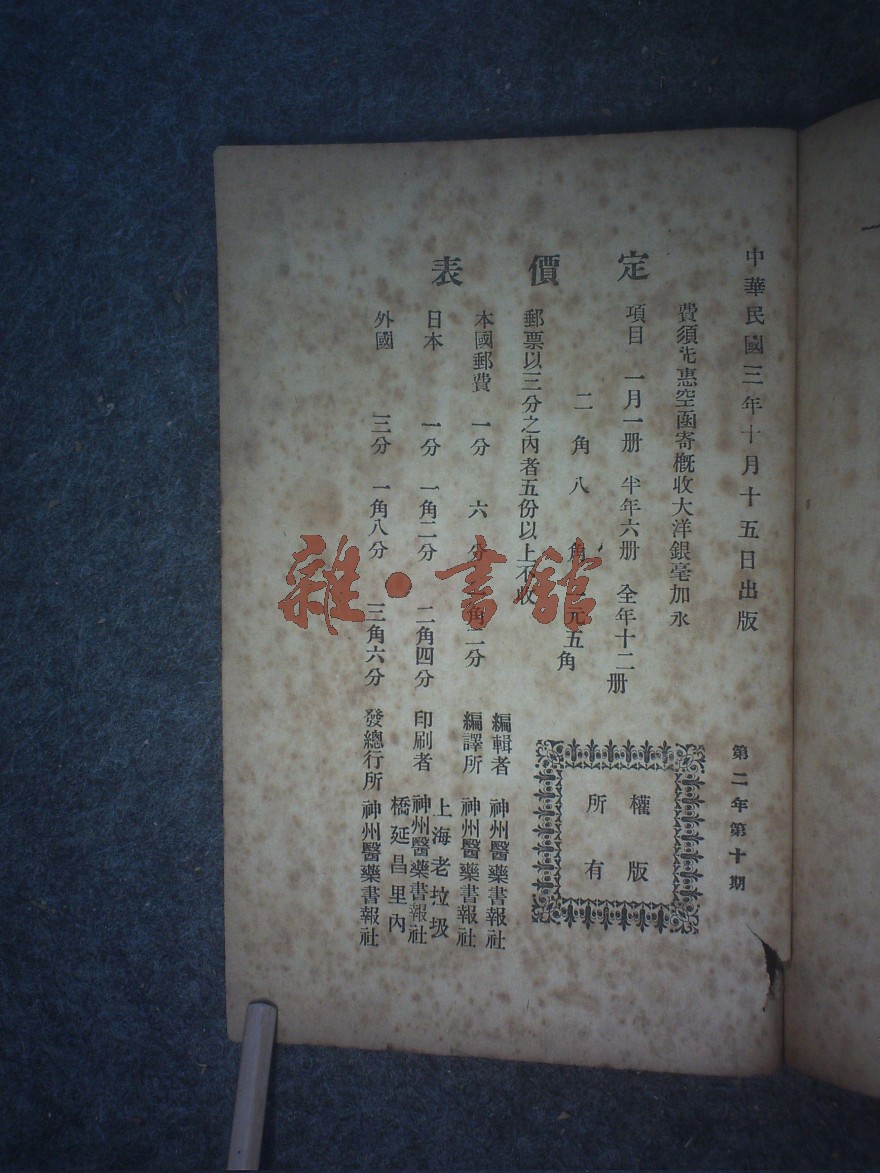 中華民國三年十月十五日出版
第二年第十期
定價表
費須先惠空函寄概收大洋銀毫加水
項目 一月一册 半年六册 全年十二册
二角 八角 一元五角
郵票以三分之內者五份以上不收
本國郵費 一分 六分 一角二分
日本 一分 一角二分 二角四分
外國 三分 一角八分 三角六分
權版
所有
編輯者 神州醫藥書報社
編譯所 神州醫藥書報社
上海老垃圾
印刷者 神州醫藥書報社
橋延昌里內
發總行所 神州醫藥書報社
雜·書館